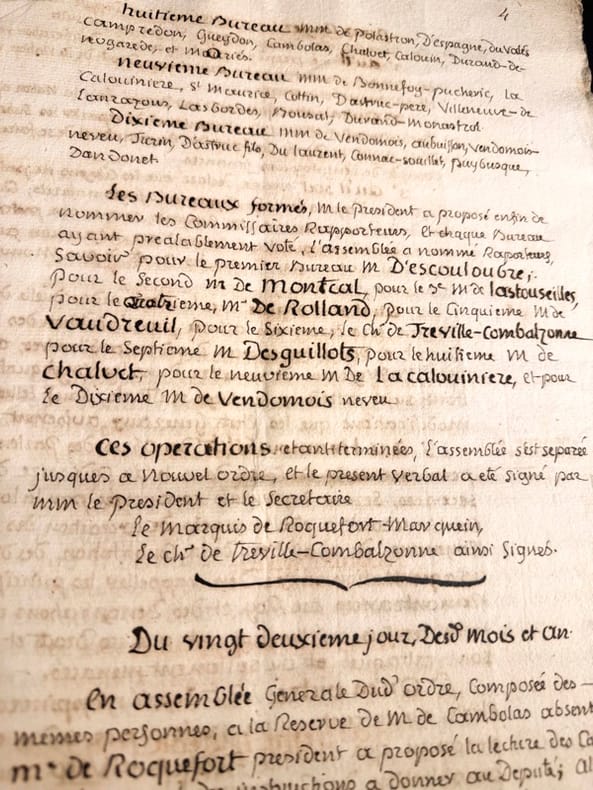 4
huitieme Bureau mm de Polastron, D'espagne, du Valés
Campredon, Gueydon, Cambolas, Chalvet, Calouin, Durand-de-
nogarede, et madriés.
neuvieme Bureau mm de Bonnefoy-pucheric, La
Calouiniere, St Maurice, Cottin, Dastruc-pere, Villeneuve-de
Lanrazous, Lasbordes, Roussal, Durand-monastrol
Dixieme Bureau mm de Vendomois, aubuisson, vendomois-
neveu, Turin, Dastruc filo, Du laurent, Connac-souillot, puybusque,
Dandonet
Les Bureaux formés, M le president a proposé enfin de
nommer les Commissaires Rapporteurs, et chaque Bureau
ayant prealablement voté, l'assemblée a nommé Raporteurs,
Savoir pour le premier Bureau M D'escouloubre,
pour le Second M de Montcal, pour le 3e M de lastouseilles,
pour le Quatrieme, Mr De Rolland, pour le Cinquieme M de
Vaudreuil, pour le Sixieme, le chr de Treville-Combalzonne
pour le Septieme M Desguillots, pour le huitieme M de
chalvet, pour le neuvieme M De Lacalouiniere, et pour
Le Dixieme M de Vendomois neveu
Ces operations etant terminées, l'assemblée s'est separée
jusques a nouvel ordre, et le present verbal a eté signé par
MM le President et le Secretaire
Le Marquis de Roquefort-Marquein,
Le chr de Treville-Combalzonne ainsi Signés.
Du vingt deuxieme jour, Desd mois et an
En assemblée Generale Dud ordre, Composée des
memes personnes, a la Reserve de M de Cambolas absent
mr de Roquefort president a proposé la lecture des
instructions a donner au Deputé;